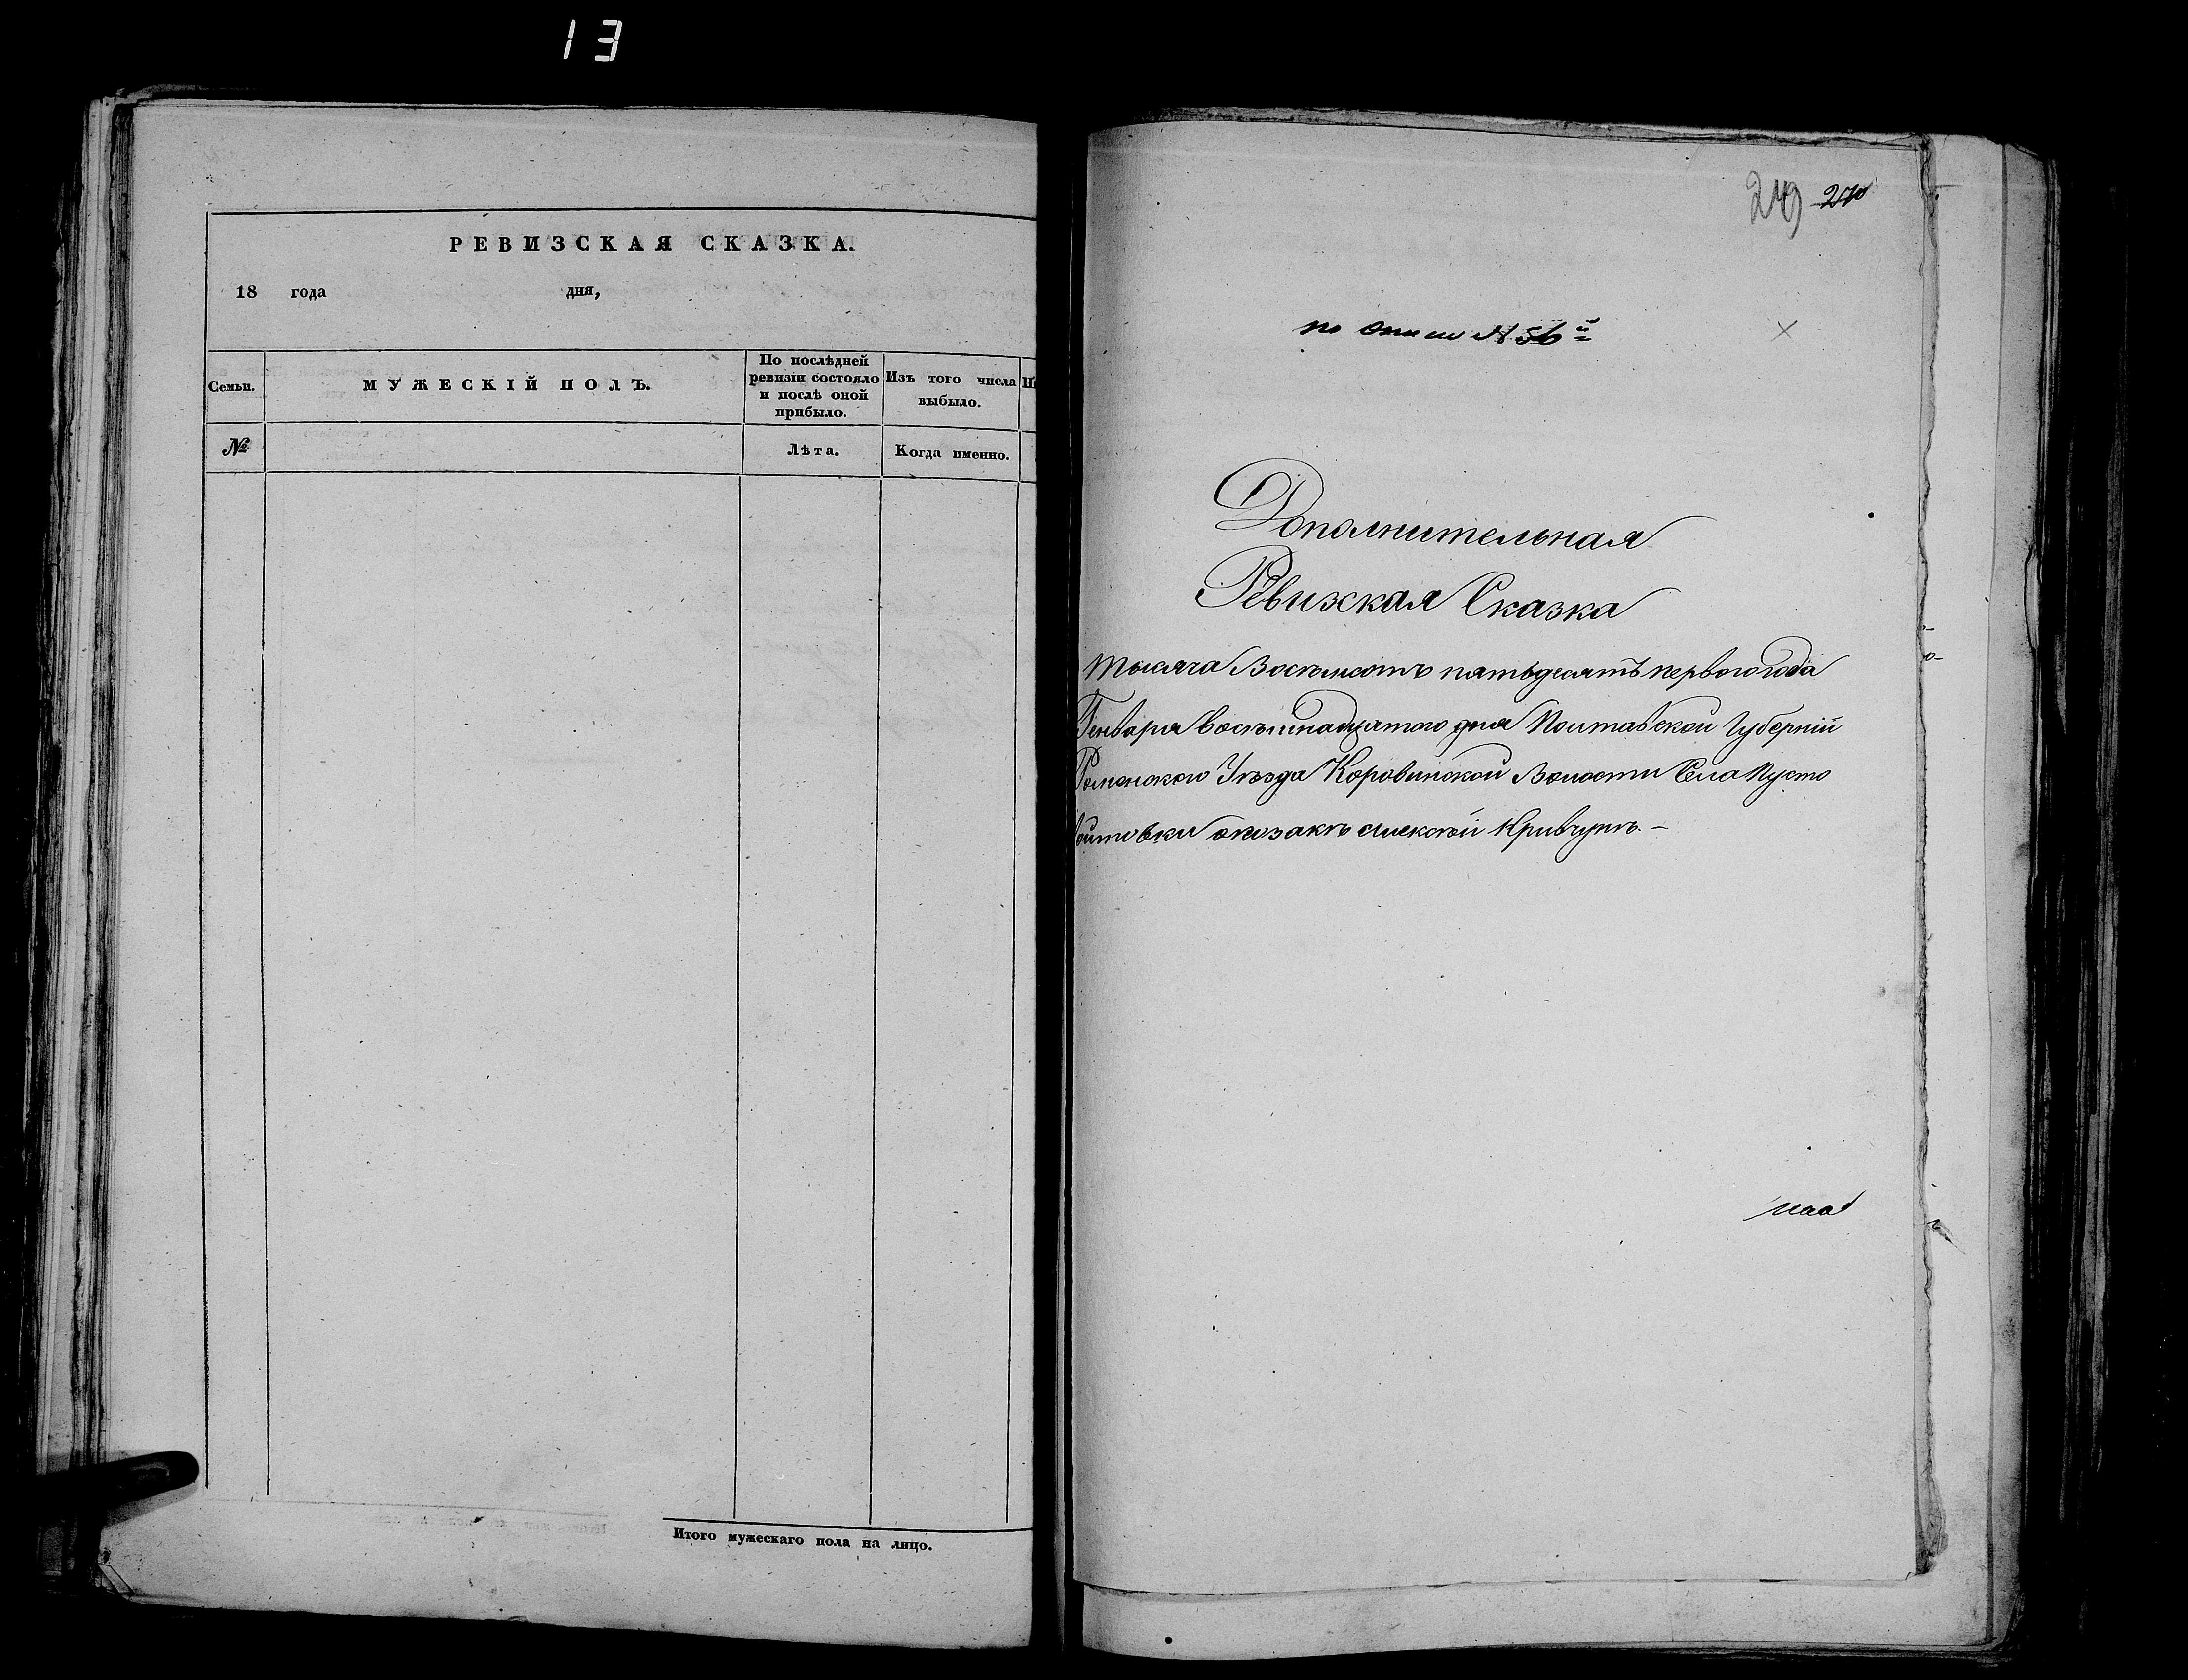 13
РЕВИЗСКАЯ СКАЗКА.
18 года дня,
Семьи.
МУЖЕСКІЙ ПОЛЪ.
По послѣдней
ревизіи состояло
и послѣ оной
прибыло.
Изъ того числа
выбыло.
№
Лѣта.
Когда именно.
Итого мужескаго пола на лицо.
249
по описи № 56й
Дополнительная
Ревизская Сказка
тысяча Восемьсотъ пятьдесятъ первого года
Генваря восемнадцятого дня Полтавской Губерніи
Роменского Уѣзда Коровинской Волости Села Пусто
войтовки о козакѣ Алексѣи Кривчунѣ.-